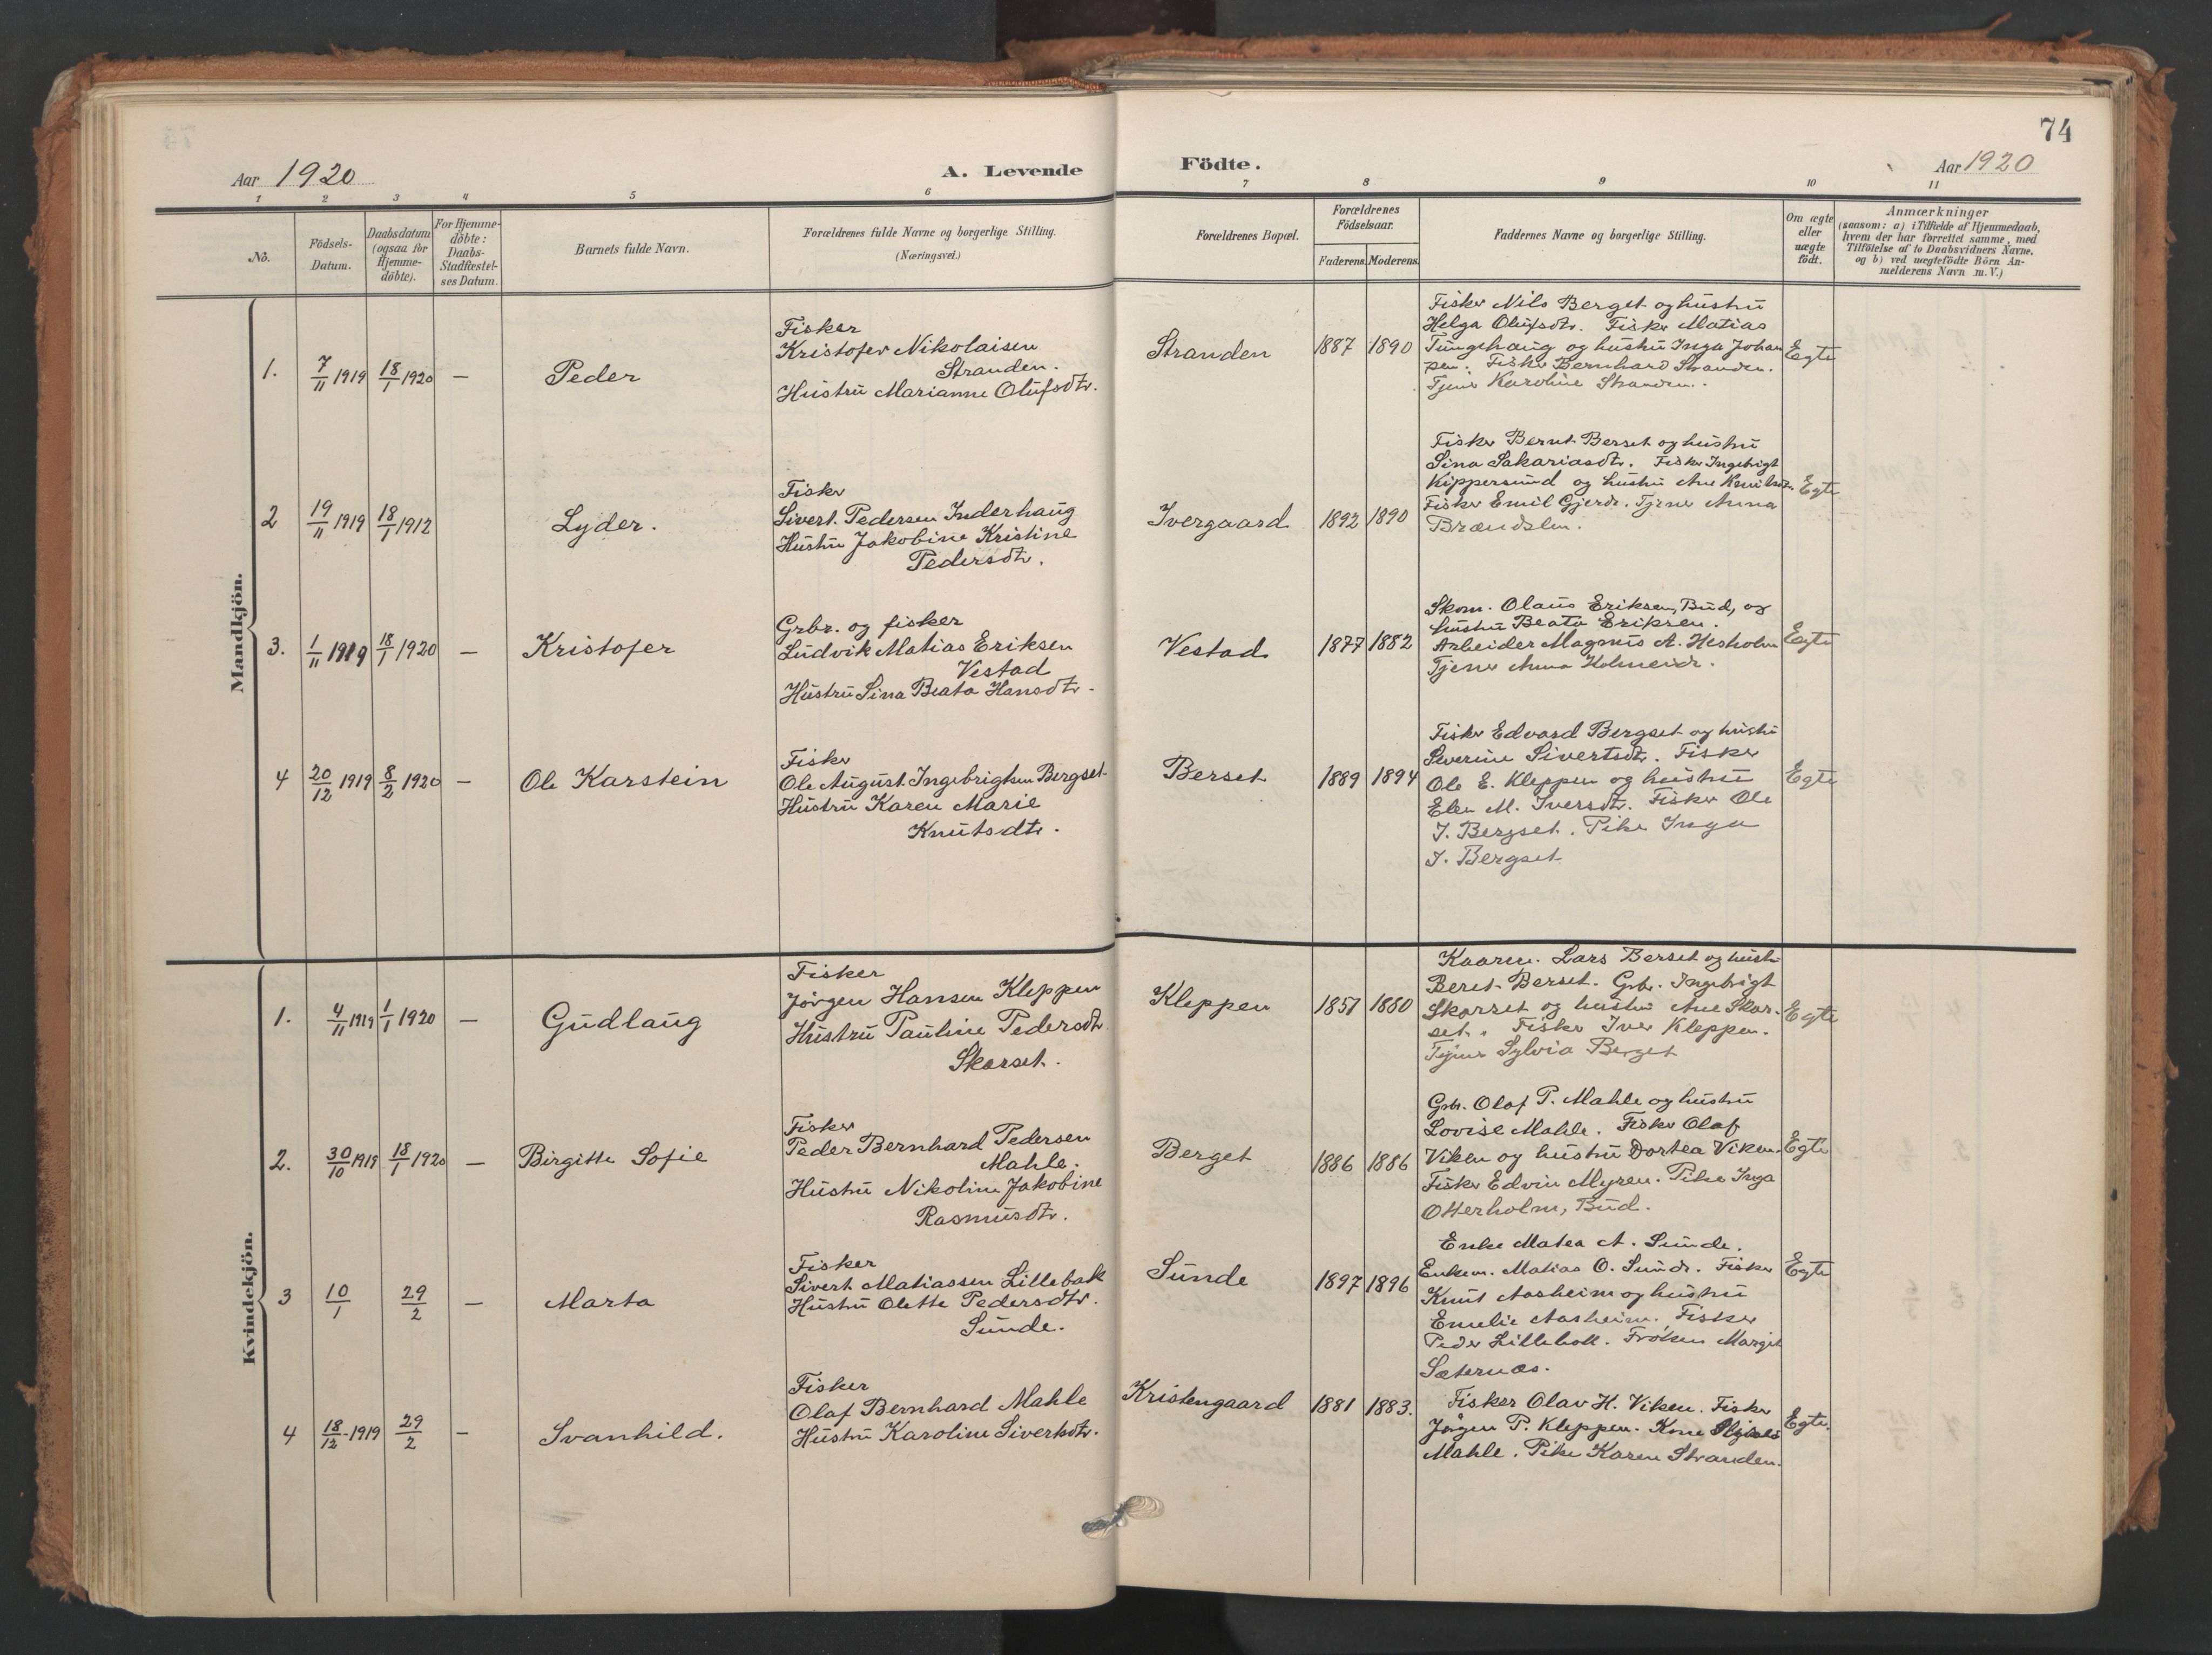 74
Aar 1920
A. Levende
Födte.
Aar 1920
1 2 3 4 5 6 7 8 9 10 11
No.
Födsels-
Datum.
Daabsdatum
(ogsaa for
Hjemme-
döbte).
For Hjemme-
döbte:
Daabs-
Stadfæstel-
ses Datum.
Barnets fulde Navn.
Forældrenes fulde Navne og borgerlige Stilling.
(Næringsvei.)
Forældrenes Bopæl.
Forældrenes
Födselsaar.
Faderens. Moderens.
Faddernes Navne og borgerlige Stilling.
Om ægte
eller
uægte
födt.
Anmærkninger
(saasom: a) i Tilfælde af Hjemmedaab,
hvem der har forrettet samme, med
Tilföielse af to Daabsvidners Navne,
og b) ved uægtefödte Börn An-
melderens Navn m. V.)
Mandkjön.
1. 7/11 1919 18/1 1920 — Peder
Fisker
Kristofer Nikolaisen
Stranden.
Hustru Marianne Olufsdtr.
Stranden 1887 1890
Fisker Nils Berget og hustru
Helga Olufsdtr. Fisker Matias
Tungehaug og hustru Inga Johan
sen. Fisker Bernhard Stranden.
Tjener Karoline Stranden.
Egte
2 19/11 1919 18/1 1912 Lyder.
Fisker
Sivert Pedersen Inderhaug
Hustru Jakobine Kristine
Pedersdtr.
Ivergaard 1892 1890
Fisker Bernt Berset og hustru
Sina Sakariasdtr. Fisker Ingebrigt
Kippersund og hustru Ane Knutsdtr.
Fisker Emil Gjerde. Tjener Anna
Brændslen.
Egte
3. 1/11 1919 18/1 1920 — Kristofer
Grbr. og fisker
Ludvik Matias Eriksen
Vestad
Hustru Sina Beata Hansdtr.
Vestad 1877 1882
Skom. Olaus Eriksen, Bud, og
hustru Beata Eriksen.
Arbeider Magnus A. Hesholm
Tjener Anna Holmeide.
Egte
4 20/12 1919 8/2 1920 — Ole Karstein
Fisker
Ole August Ingebrigtsen Bergset
Hustru Karen Marie
Knutsdtr.
Berset 1889 1894
Fisker Edvard Bergset og hustru
Severine Sivertsdtr. Fisker
Ole E. Kleppen og hustru
Elen M. Iversdtr. Fisker Ole
I. Bergset. Pike Inga
I. Bergset
Egte
Kvindekjön.
1. 4/11 1919 1/1 1920 — Gudlaug
Fisker
Jörgen Hansen Kleppen
Hustru Pauline Pedersdtr.
Skarset.
Kleppen 1857 1880
Kaarm. Lars Berset og hustr
Beret Berset. Grbr. Ingebrigt
Skarset og hustru Ane Skar-
set. Fisker Iver Kleppen.
Tjener Sylvia Berget
Egte
2. 30/10 1919 18/1 1920 — Birgitte Sofie
Fisker
Peder Bernhard Pedersen
Mahle.
Hustru Nikoline Jakobine
Rasmusdtr.
Berget 1886 1886
Grbr. Olaf P. Mahle og hustru
Lovise Mahle. Fisker Olaf
Viken og hustru Dortea Viken.
Fisker Edvin Myren. Pike Inga
Otterholm, Bud.
Egte
3 10/1 29/2 — Marta
Fisker
Sivert Matiassen Lillebak
Hustru Olette Pedersdtr.
Sunde.
Sunde 1897 1896
Enke Matea A. Sunde.
Enkem. Matias O. Sunde. Fisker
Knut Aasheim og hustru
Emelie Aasheim. Fisker
Peder Lillebak. Fröken Margit
Sæternæs.
Egte
4 18/12 - 1919 29/2 — Svanhild.
Fisker
Olaf Bernhard Mahle
Hustru Karoline Sivertsdtr.
Kristengaard 1881 1883.
Fisker Olav H. Viken. Fisker
Jörgen P. Kleppen. Kone
Mahle. Pike Karen Stranden.
Egte.